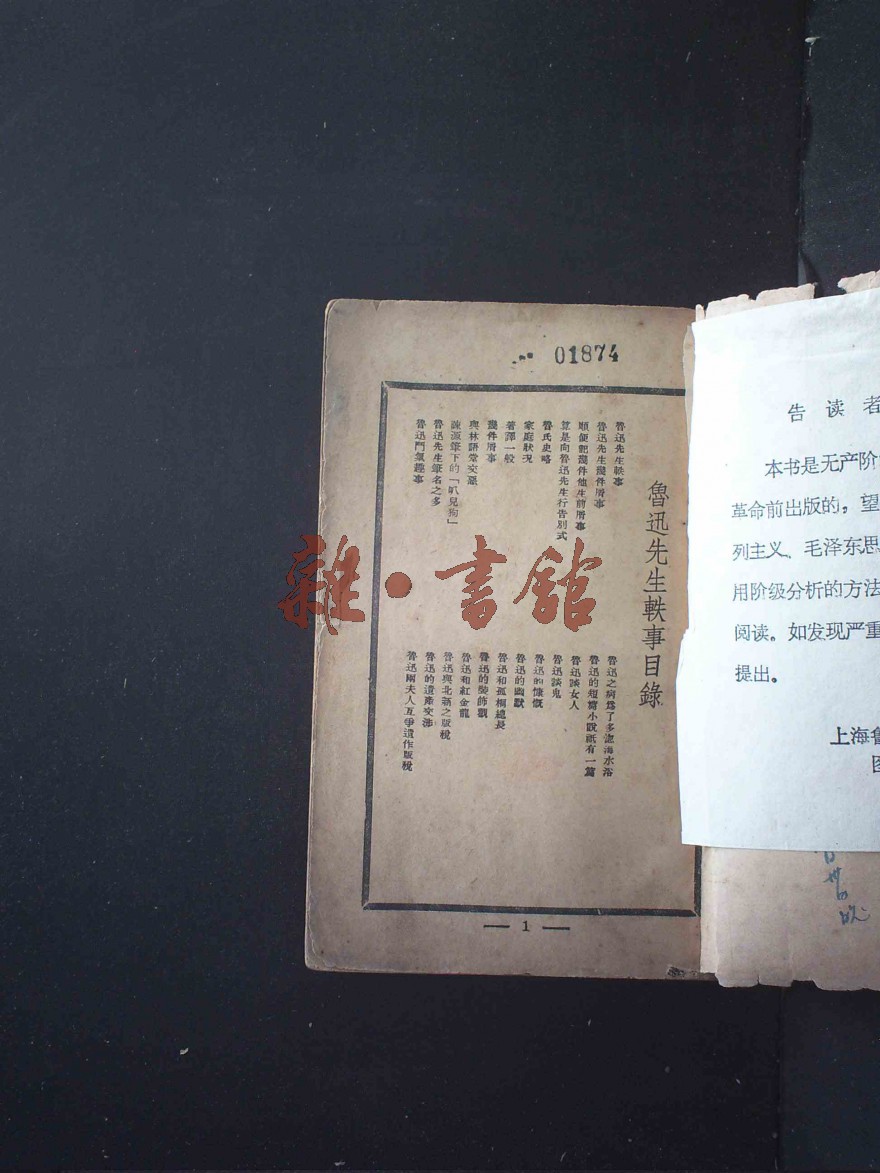 01874
魯迅先生軼事目錄
魯迅先生軼事
魯迅先生幾件屑事
順便記幾件他生前屑事
算是向魯迅先生行告別式
魯氏史略
家庭狀況
著譯一般
幾件屑事
與林語堂交惡
諫源筆下的「叭兒狗」
魯迅先生筆名之多
魯迅鬥氣趣事
魯迅之病爲了多洗海水浴
魯迅的短篇小說祇有一篇
魯迅談女人
魯迅談鬼
魯迅的慷慨
魯迅的幽默
魯迅和孤桐總長
魯迅的裝飾觀
魯迅和紅金龍
魯迅與北新之版稅
魯迅的遺產交涉
魯迅兩夫人互爭遺作版稅
— 1 —
雜·書館
告读者
本书是无产阶
革命前出版的，望
列主义、毛泽东思
用阶级分析的方法
阅读。如发现严重
提出。
上海鲁